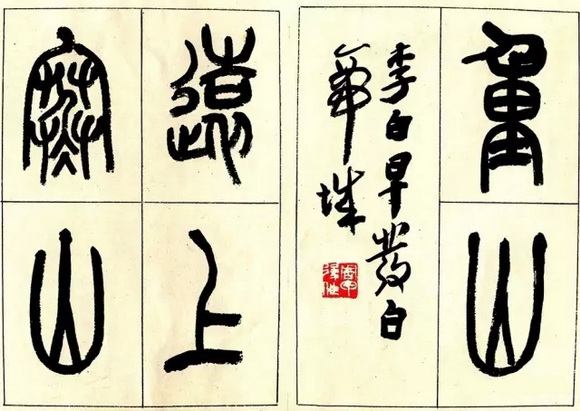 重山
李白早發白
帝城
遠上
寒山